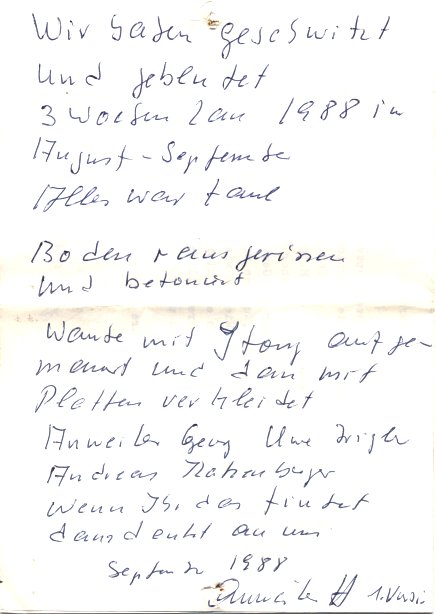 Wir haben geschwitzt
und geblutet
3 Wochen lan 1988 in
August - September
Alles war faul
Boden rausgerissen
und betoniert
Wände mit Ytong aufge-
mauert und dan mit
Platten verkleidet
Anweiler Georg Uwe
Andreas
wenn Ihr das findet
dan denkt an uns
September 1988
Anweiler